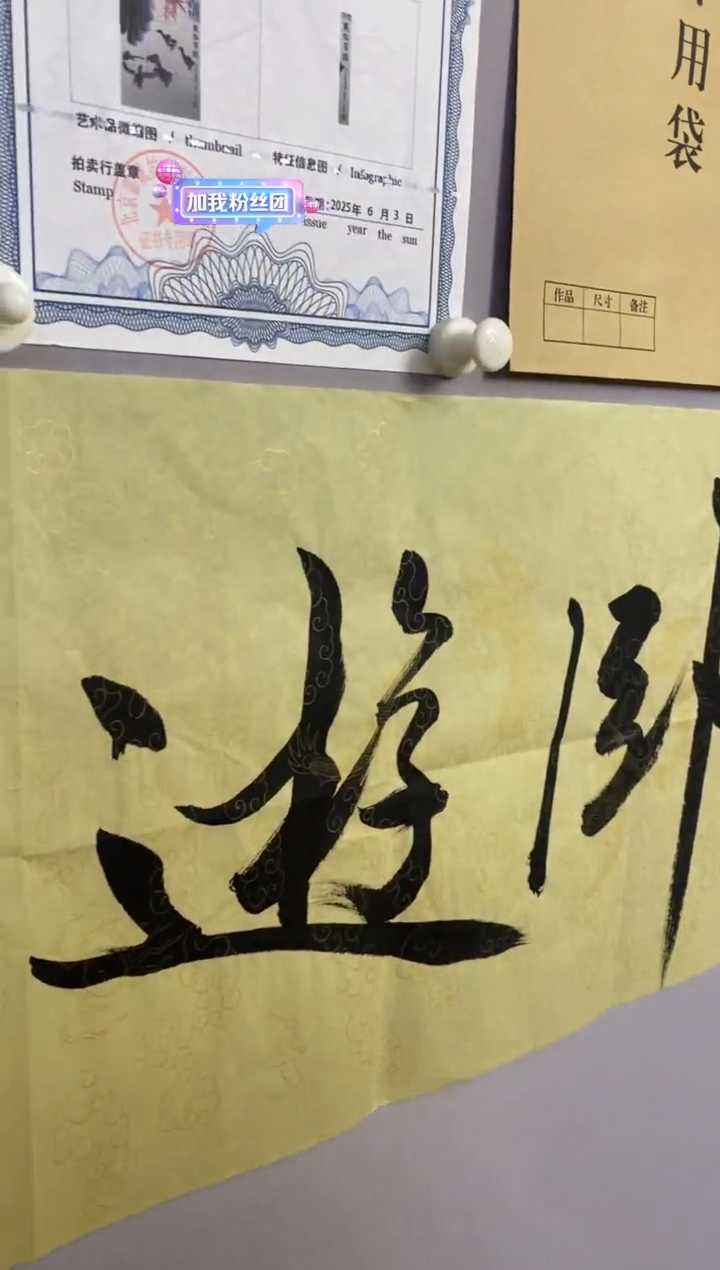 用袋
艺术品微缩图 / thumbnail
特征信息图 / Infographic
拍卖行盖章
Stamp
加我粉丝团
期:2025年 6 月 3 日
issue year the sun
证书专用
作品 尺寸 备注
遊 卧